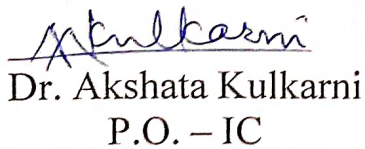 AKulkarni
Dr. Akshata Kulkarni
P.O. – IC